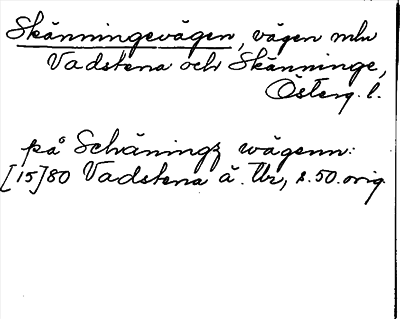 Skänningevägen, vägen mln
Vadstena och Skänninge,
Österg. l.
på Schäningz wägenn:
[15]80 Vadstena ä. Tb, s. 50. orig.